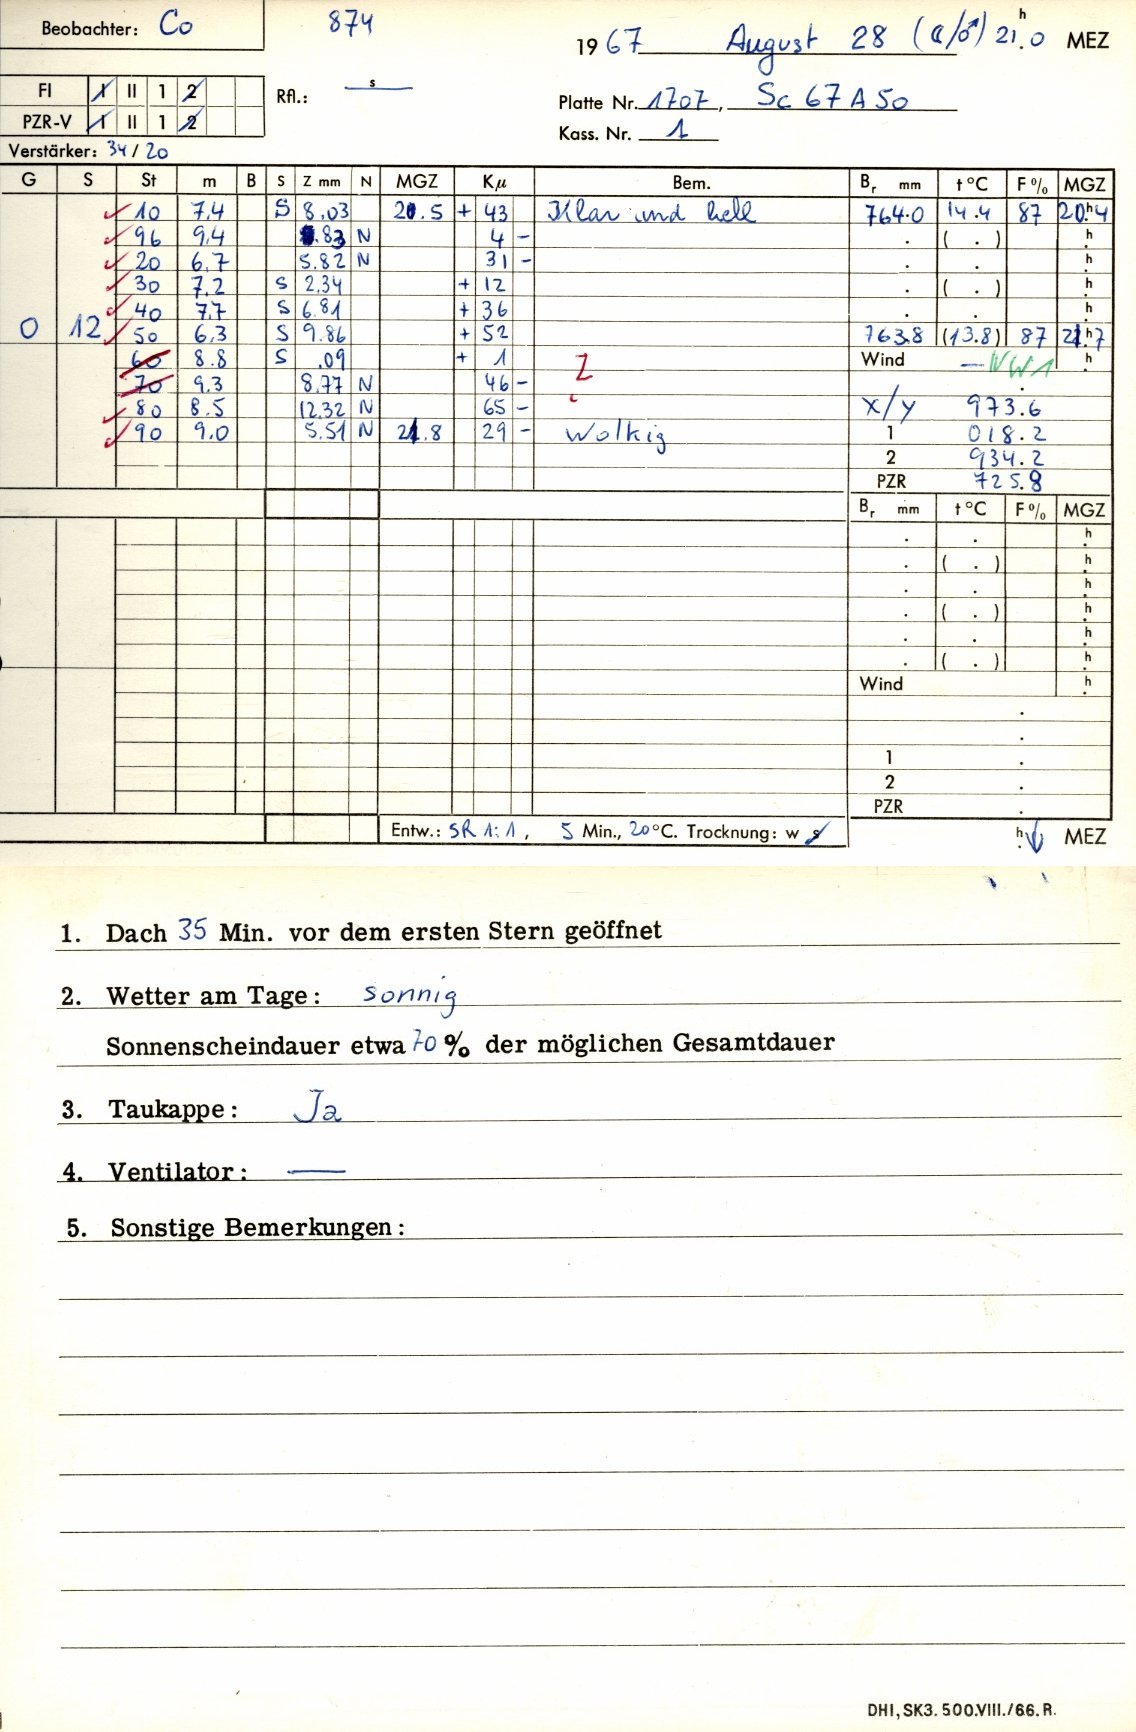 Beobachter: Co 874
1967 August 28 (☾/♂) 21h.0 MEZ
FI I II 1 2 Rfl.: s
Platte Nr. 1707, Sc 67 A 50
PZR-V I II 1 2
Kass. Nr. 1
Verstärker: 34/20
G S St m B S Z mm N MGZ Kμ Bem. Br mm t°C F% MGZ
10 7,4 S 8.03 20.5 + 43 Klar und hell 764.0 14.4 87 20h.4
96 9,4 .83 N 4 - . ( . ) h.
20 6,7 5.82 N 31 - . . h.
30 7,2 S 2.34 + 12 . ( . ) h.
40 7,7 S 6.81 + 36 . . h.
0 12 50 6,3 S 9.86 + 52 763.8 (13.8) 87 21h.7
60 8.8 S .09 + 1 Z Wind — NW1 h.
70 9.3 8.77 N 46 - .
80 8.5 12.32 N 65 - x/y 973.6
90 9.0 5.51 N 21.8 29 - Wolkig 1 018.2
2 934.2
PZR 725.8
Br mm t°C F% MGZ
. . h.
. ( . ) h.
. . h.
. ( . ) h.
. . h.
. ( . ) h.
Wind h.
.
.
1 .
2 .
PZR .
Entw.: SR 1:1, 5 Min., 20°C. Trocknung: w s h. MEZ
1. Dach 35 Min. vor dem ersten Stern geöffnet
2. Wetter am Tage: sonnig
Sonnenscheindauer etwa 70 % der möglichen Gesamtdauer
3. Taukappe: Ja
4. Ventilator: —
5. Sonstige Bemerkungen:
DHI, SK3. 500.VIII./66. R.